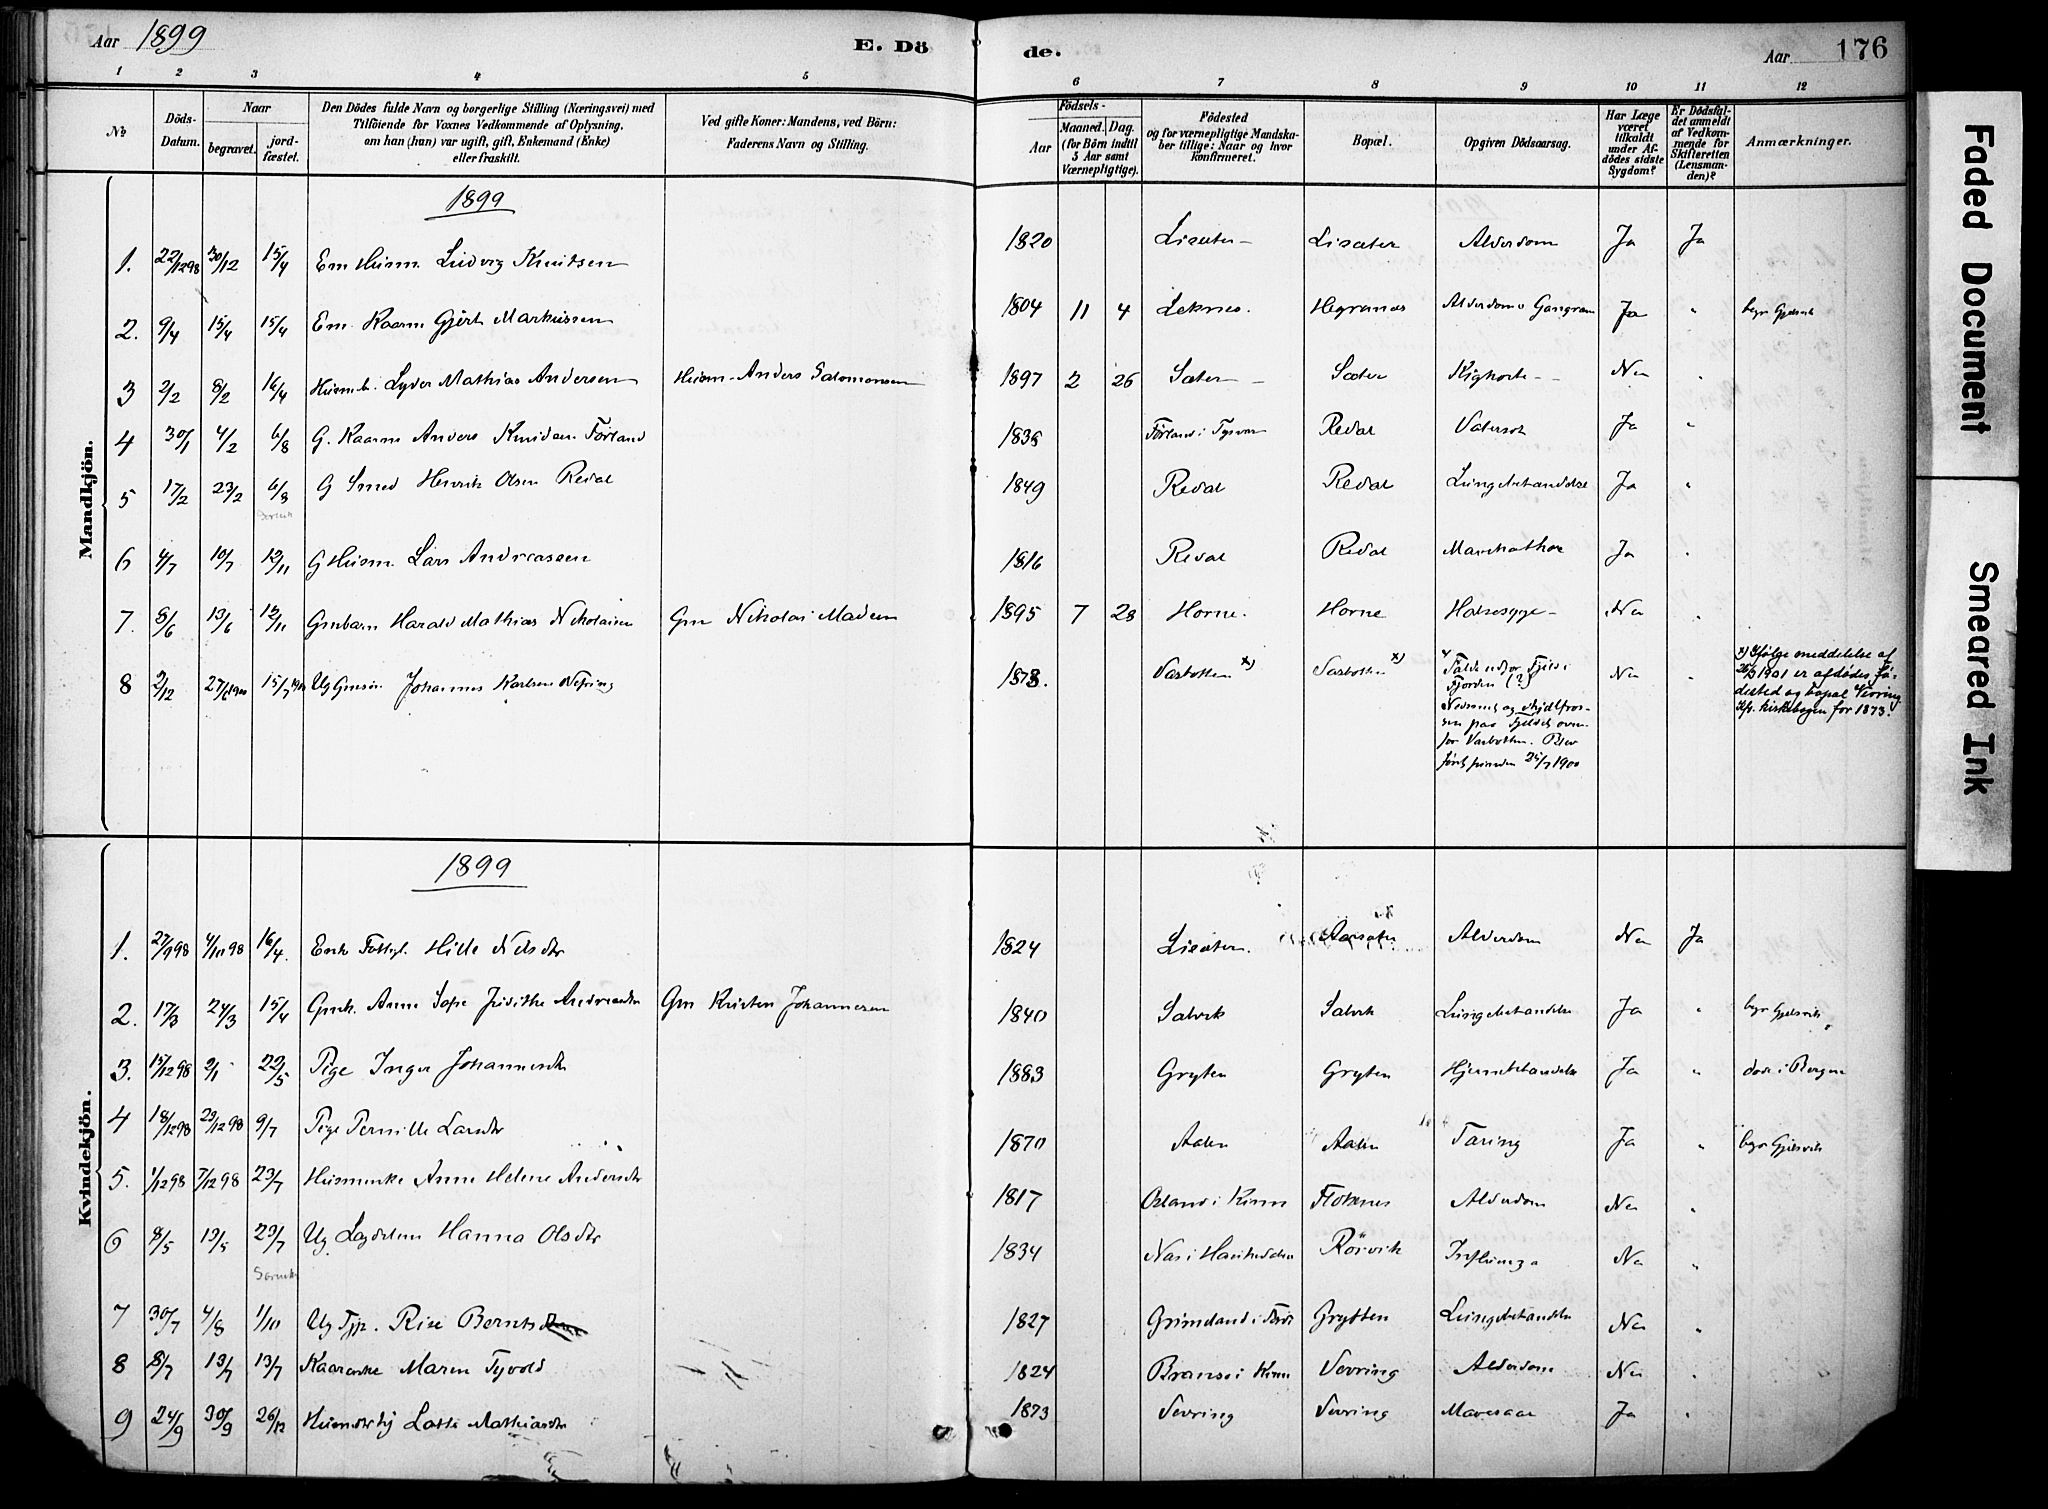 Aar 1899
E. Döde.
Aar 176
1 2 3 4 5 6 7 8 9 10 11 12
№
Döds-Datum.
Naar
begravet.
jordfæstet.
Den Dödes fulde Navn og borgerlige Stilling (Næringsvei) med
Tilföiende for Voxnes Vedkommende af Oplysning,
om han (hun) var ugift, gift, Enkemand (Enke)
eller fraskilt.
Ved gifte Koner: Mandens, ved Börn:
Faderens Navn og Stilling.
Födsels-
Aar
Maaned. Dag.
(for Börn indtil
5 Aar samt
Værnepligtige).
Födested
og for værnepligtige Mandskaber tillige: Naar og hvor
konfirmeret.
Bopæl.
Opgiven Dödsaarsag.
Har Læge
været
tilkaldt
under Afdödes sidste
Sygdom?
Er Dödsfaldet anmeldt
af Vedkommende for
Skifteretten
(Lensmanden)?
Anmærkninger.
Mandkjön.
1899
1. 22/12 98 30/12 15/4 Em Husm. Ludvig Knudsen 1820 Lisæter Lisæter Alderdom Ja Ja
2. 9/4 15/4 15/4 Em. Kaarm Gjert Markussen 1804 11 4 Leknes. Hegranes Alderdom Gangræn Ja " begr Gjelsvik
3 2/2 8/2 16/4 Husmb. Lyder Mathias Andersen Husm. Anders Salomonsen 1897 2 26 Sæter Sæter Kighoste Nei "
4 30/1 4/2 6/8 G. Kaarm Anders Knudsen Førland 1838 Førland i Tysvær Redal Vatersot Ja "
5 17/2 23/2 6/8 G Smed Henrik Olsen Redal 1849 Redal Redal Lungebetændelse Ja "
6 4/7 10/7 12/11 G Husm. Lars Andreassen 1816 Redal Redal Ja "
7. 8/6 13/6 12/11 Gmbarn Harald Mathias Nikolaisen Gm Nikolai Madsen 1895 7 28 Horne. Horne Halsesyge Nei "
8 2/12 27/7 1900 15/7 1900 Ug Gmsøn Johannes Karlsen 1873. Vasbotten x) Vasbotten x)
Falde udfor Fjeld i
Fjorden (?)
Nedsned og ihjelfrossen paa Fjeldet ovenfor Vasbotten. Blev
først funden 25/7 1900
Nei "
x) Ifølge meddelelse af
26/3 1901 er afdødes fødested og bopæl Vevring
kfr. kirkebogen for 1873.
Kvindekjön.
1899
1. 27/9 98 4/10 98 16/4. Enke Fattigl. Hille Nilsdtr 1824 Lisæter. Aarsæter Alderdom Nei Ja
2. 17/3 24/3 15/4 Gmk. Anne Sofie Judithe Andreasdtr Gm Kristen Johannesen 1840 Salvik Salvik Lungebetændelse Ja " begr Gjelsvik
3. 15/12 98 2/1 22/5 Pige Inger Johannesdtr 1883 Gryten Gryten Hjernebetændelse Ja " døde i Bergen
4 18/12 98 29/12 98 9/7 Pige Pernille Larsdtr 1870 Aalen Aalen Tæring Ja " begr Gjelsvik
5. 1/12 98 7/12 98 23/7 Husmenke Anne Helene Andersdtr 1817 i Kinn Flokenes Alderdom Nei "
6 8/5 13/5 23/7 Ug Lægdslem Hanna Olsdtr 1834 Rörvik Influenza Nei "
7 30/7 4/8 1/10 Ug Tjp. Rise Berntsdtr 1827 Grimeland i Førde Grytten Lungebetændelse Nei "
8 8/7 13/7 13/7 Kaarenke Maren 1824 Bransø i Kinn Vevring Alderdom Nei "
9 24/9 30/9 26/12 Lotte Mathiasdtr 1873 Vevring Vevring Mavesaar Ja "
Faded Document
Smeared Ink